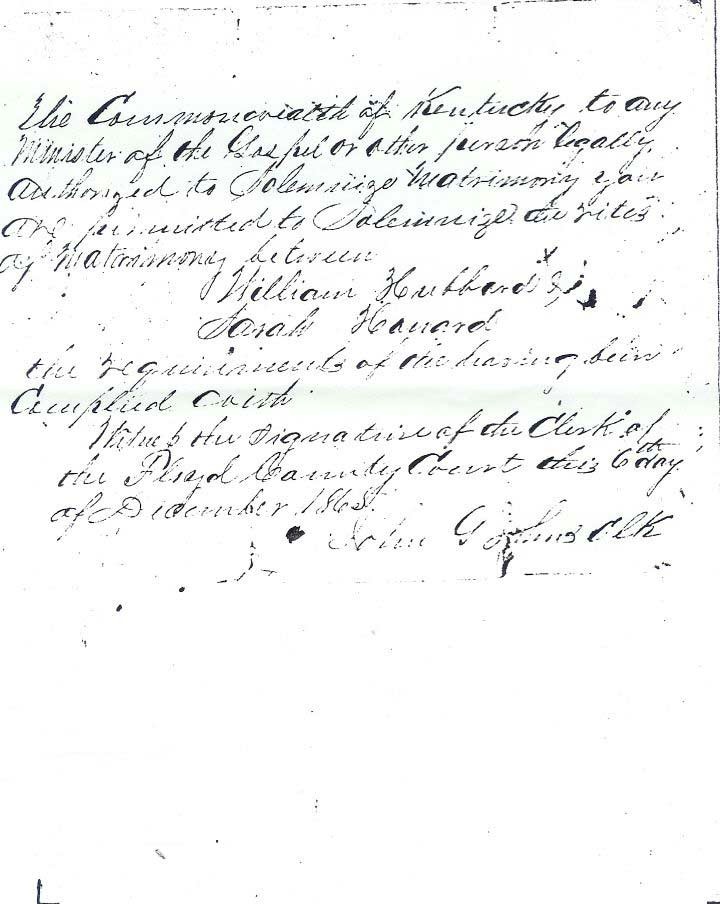 The Commonwealth of Kentucky to any
Minister of the Gospel or other person legally
authorized to Solemnize Matrimony you
are permitted to Solemnize the rites
of Matrimony between
William Hubbard &
Sarah Howard
the requirements of the having been
Complied with
Witness the signature of the Clerk of
the Floyd County Court this 6th day
of December 1865
John G clk